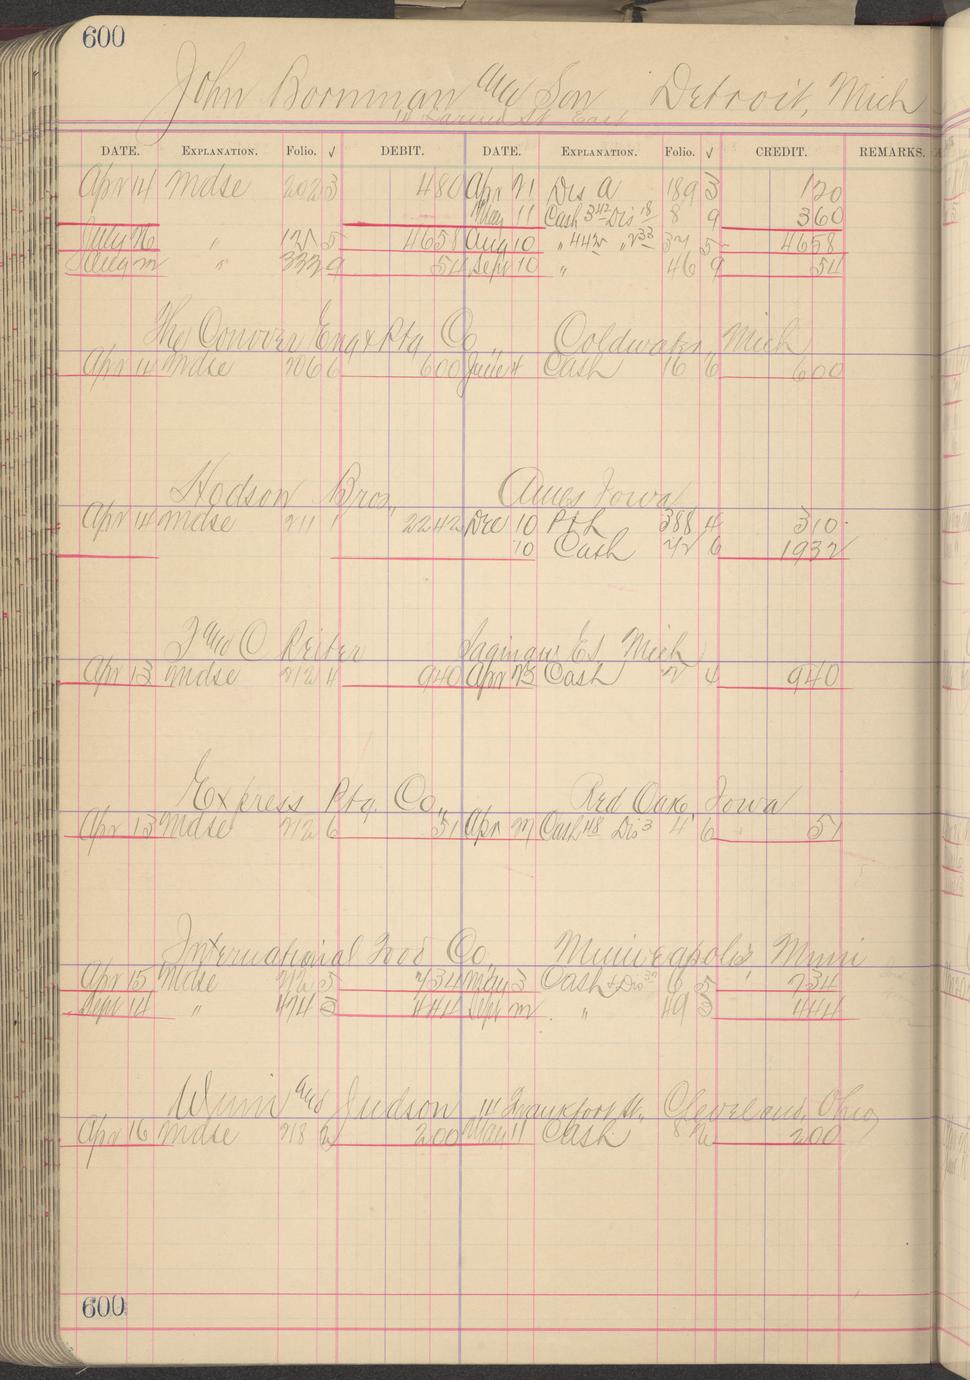 600
John Bornman and Son Detroit, Mich
St East
DATE. EXPLANATION. Folio. √ DEBIT. DATE. EXPLANATION. Folio. √ CREDIT. REMARKS.
Apr 14 Mdse 202 3 480 Apr 21 Dis A 189 3 120
May 11 Cash 3 42 Dis 18 8 9 360
July 26 " 5 4658 Aug 10 " 442 " 233 37 5 4658
Aug " 333 9 54 Sept 10 " 46 9 54
The Conover Eng & Ptg Co Coldwater, Mich
Apr 14 Mdse 206 6 600 June 4 Cash 16 6 600
Hodson Bros., Ames Iowa
Apr 14 Mdse 211 1 2242 Dec 10 P&L 388 4 310
10 Cash 6 1932
C Reiter Saginaw ES Mich
Apr 13 Mdse 212 4 940 Apr 23 Cash 2 4 940
Express Ptg. Co., Red Oak, Iowa
Apr 13 Mdse 212 6 51 Apr 27 Cash 48 Dis 3 4 6 51
International Food Co. Minneapolis Minn
Apr 15 Mdse 212 5 734 May 3 Cash & Dis 6 5 734
Sept 14 " 474 3 444 Sept " 49 3 444
and Judson Frankfort St., Cleveland, Ohio
Apr 16 Mdse 218 2 200 May 11 Cash 8 2 200
600